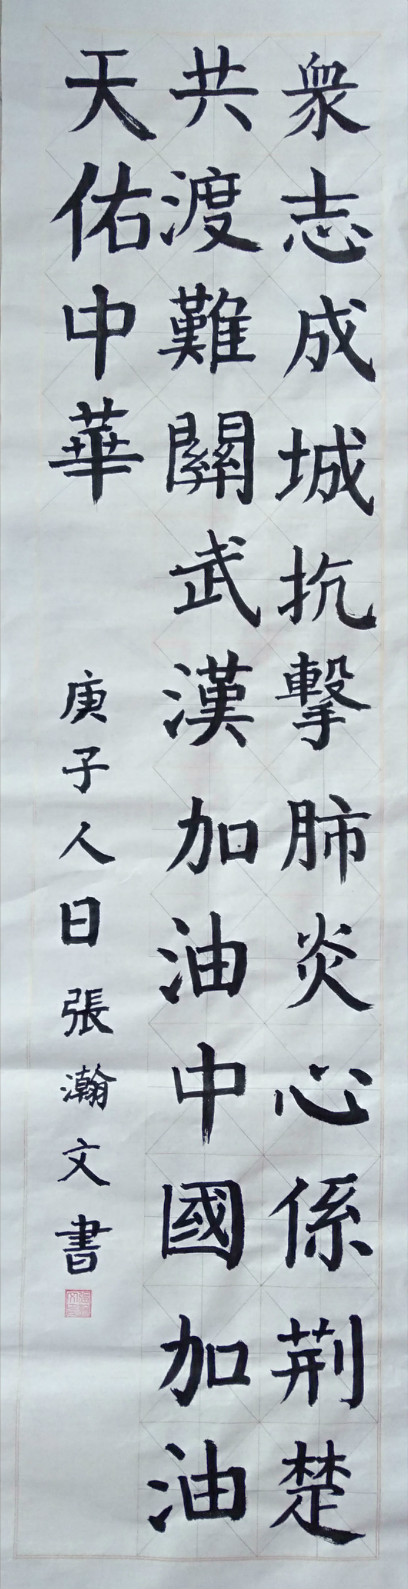 衆志成城抗擊肺炎心係荆楚
共渡難關武漢加油中國加油
天佑中華
庚子人日張瀚文書